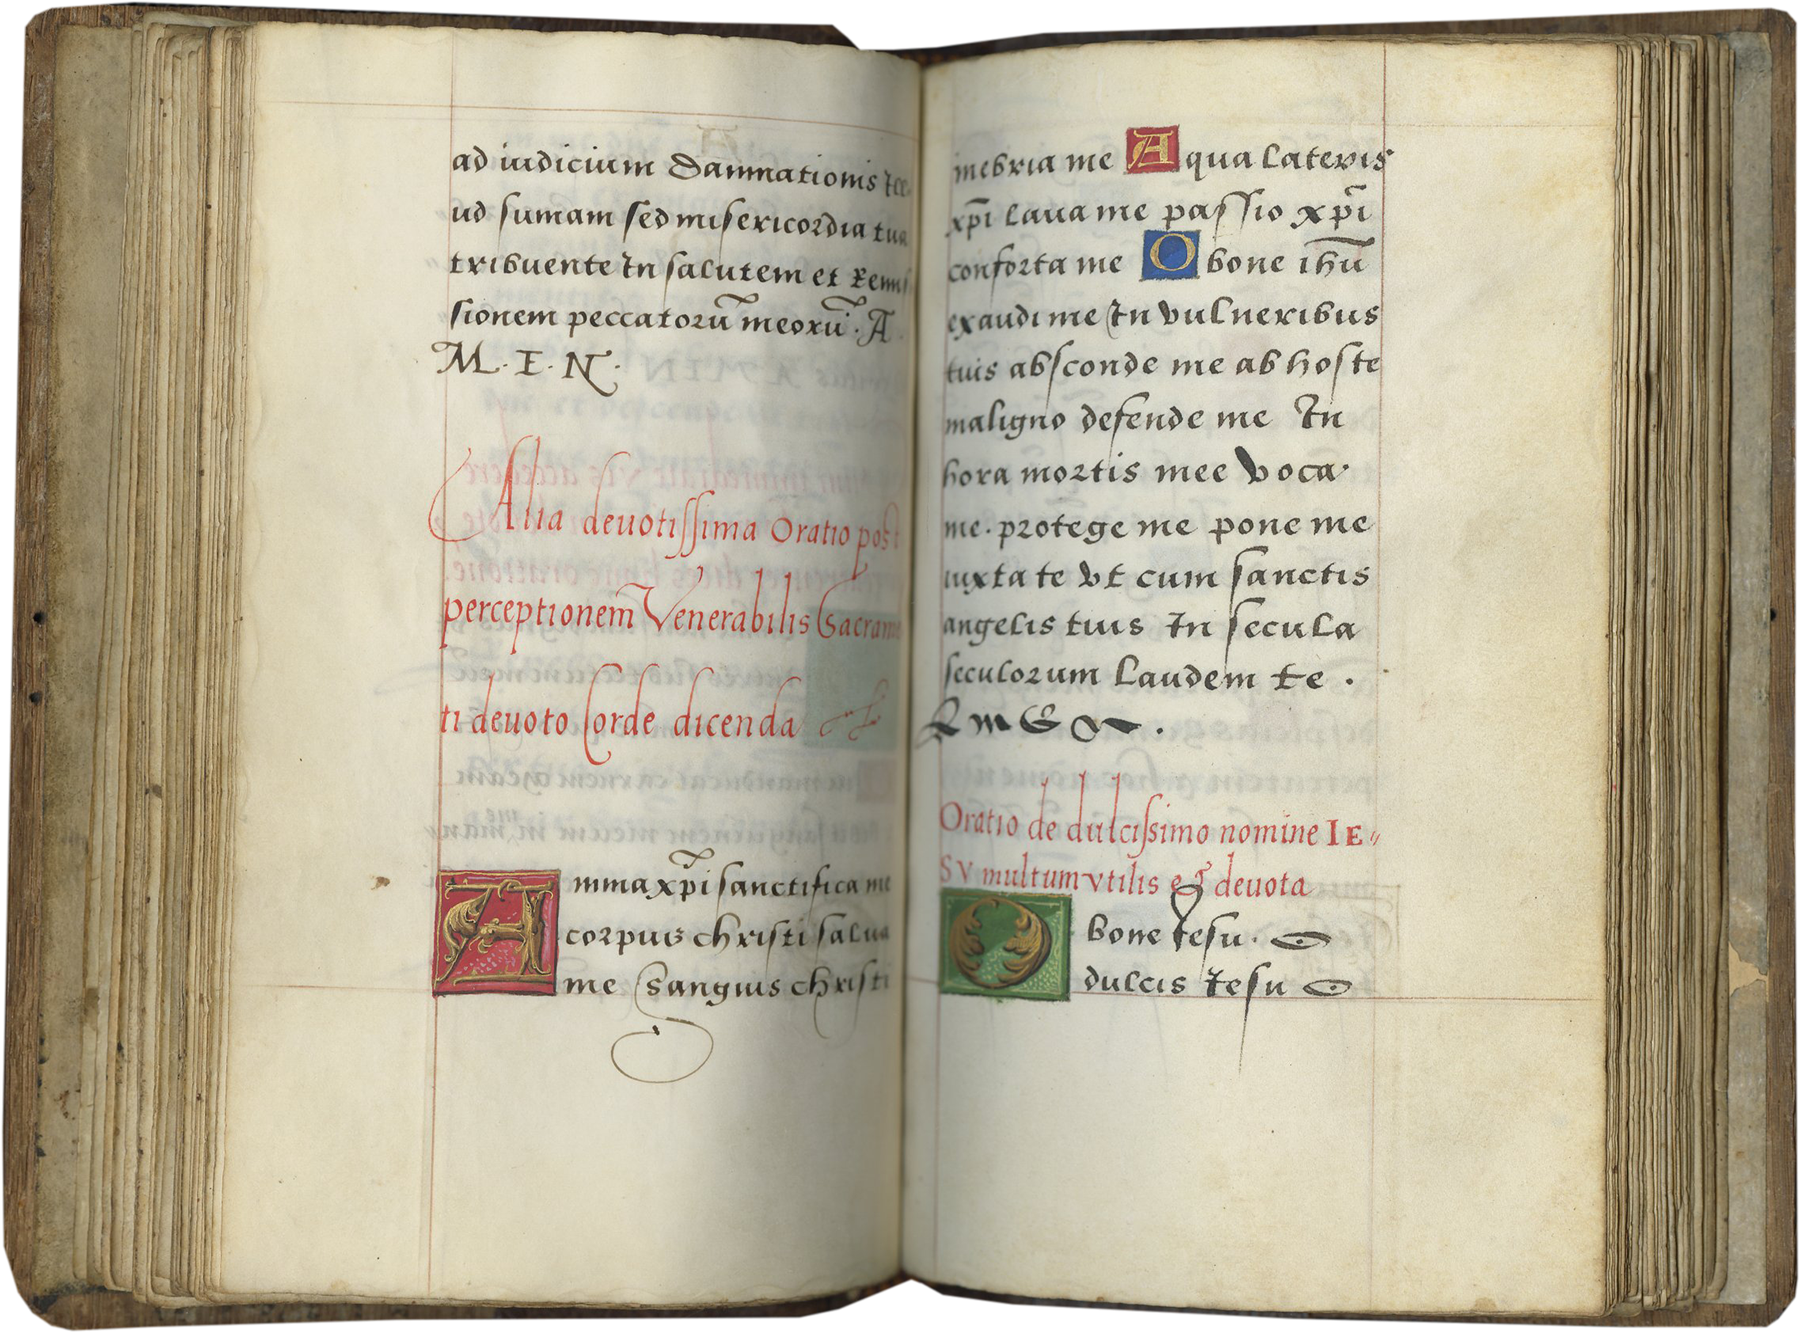 ad iudicium damnationis Ill
ud sumam sed misericordia tua
tribuente In salutem et remis
sionem peccatorū meorū. A
M. E. N.
Alia deuotissima Oratio post
perceptionem Venerabilis Sacramē
ti deuoto Corde dicenda
Anima xp̄i sanctifica me
corpus christi salua
me Sanguis christi
inebria me Aqua lateris
xp̄i laua me passio xp̄i
conforta me O bone ihū
exaudi me In vulneribus
tuis absconde me ab hoste
maligno defende me In
hora mortis mee voca
me. protege me pone me
iuxta te vt cum sanctis
angelis tuis In secula
seculorum laudem te.
AMEN.
Oratio de dulcissimo nomine IE-
SV multum vtilis & deuota
O bone Iesu. O
dulcis Iesu O